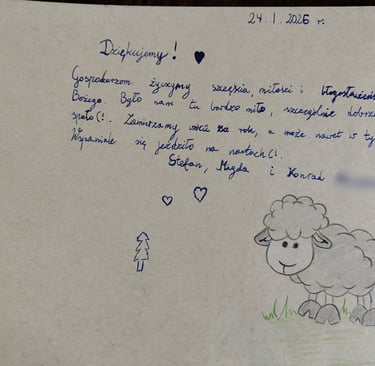 24.1.2026 r.
Dziękujemy!
Gospodarzom życzymy szczęścia, miłości i
Bożego. Było nam tu bardzo miło, szczególnie dobrze
spało(! . Zamierzamy wrócić za rok, a może nawet w
Wspaniale się jeździło na nartach(!.
Stefan, Magda i Konrad